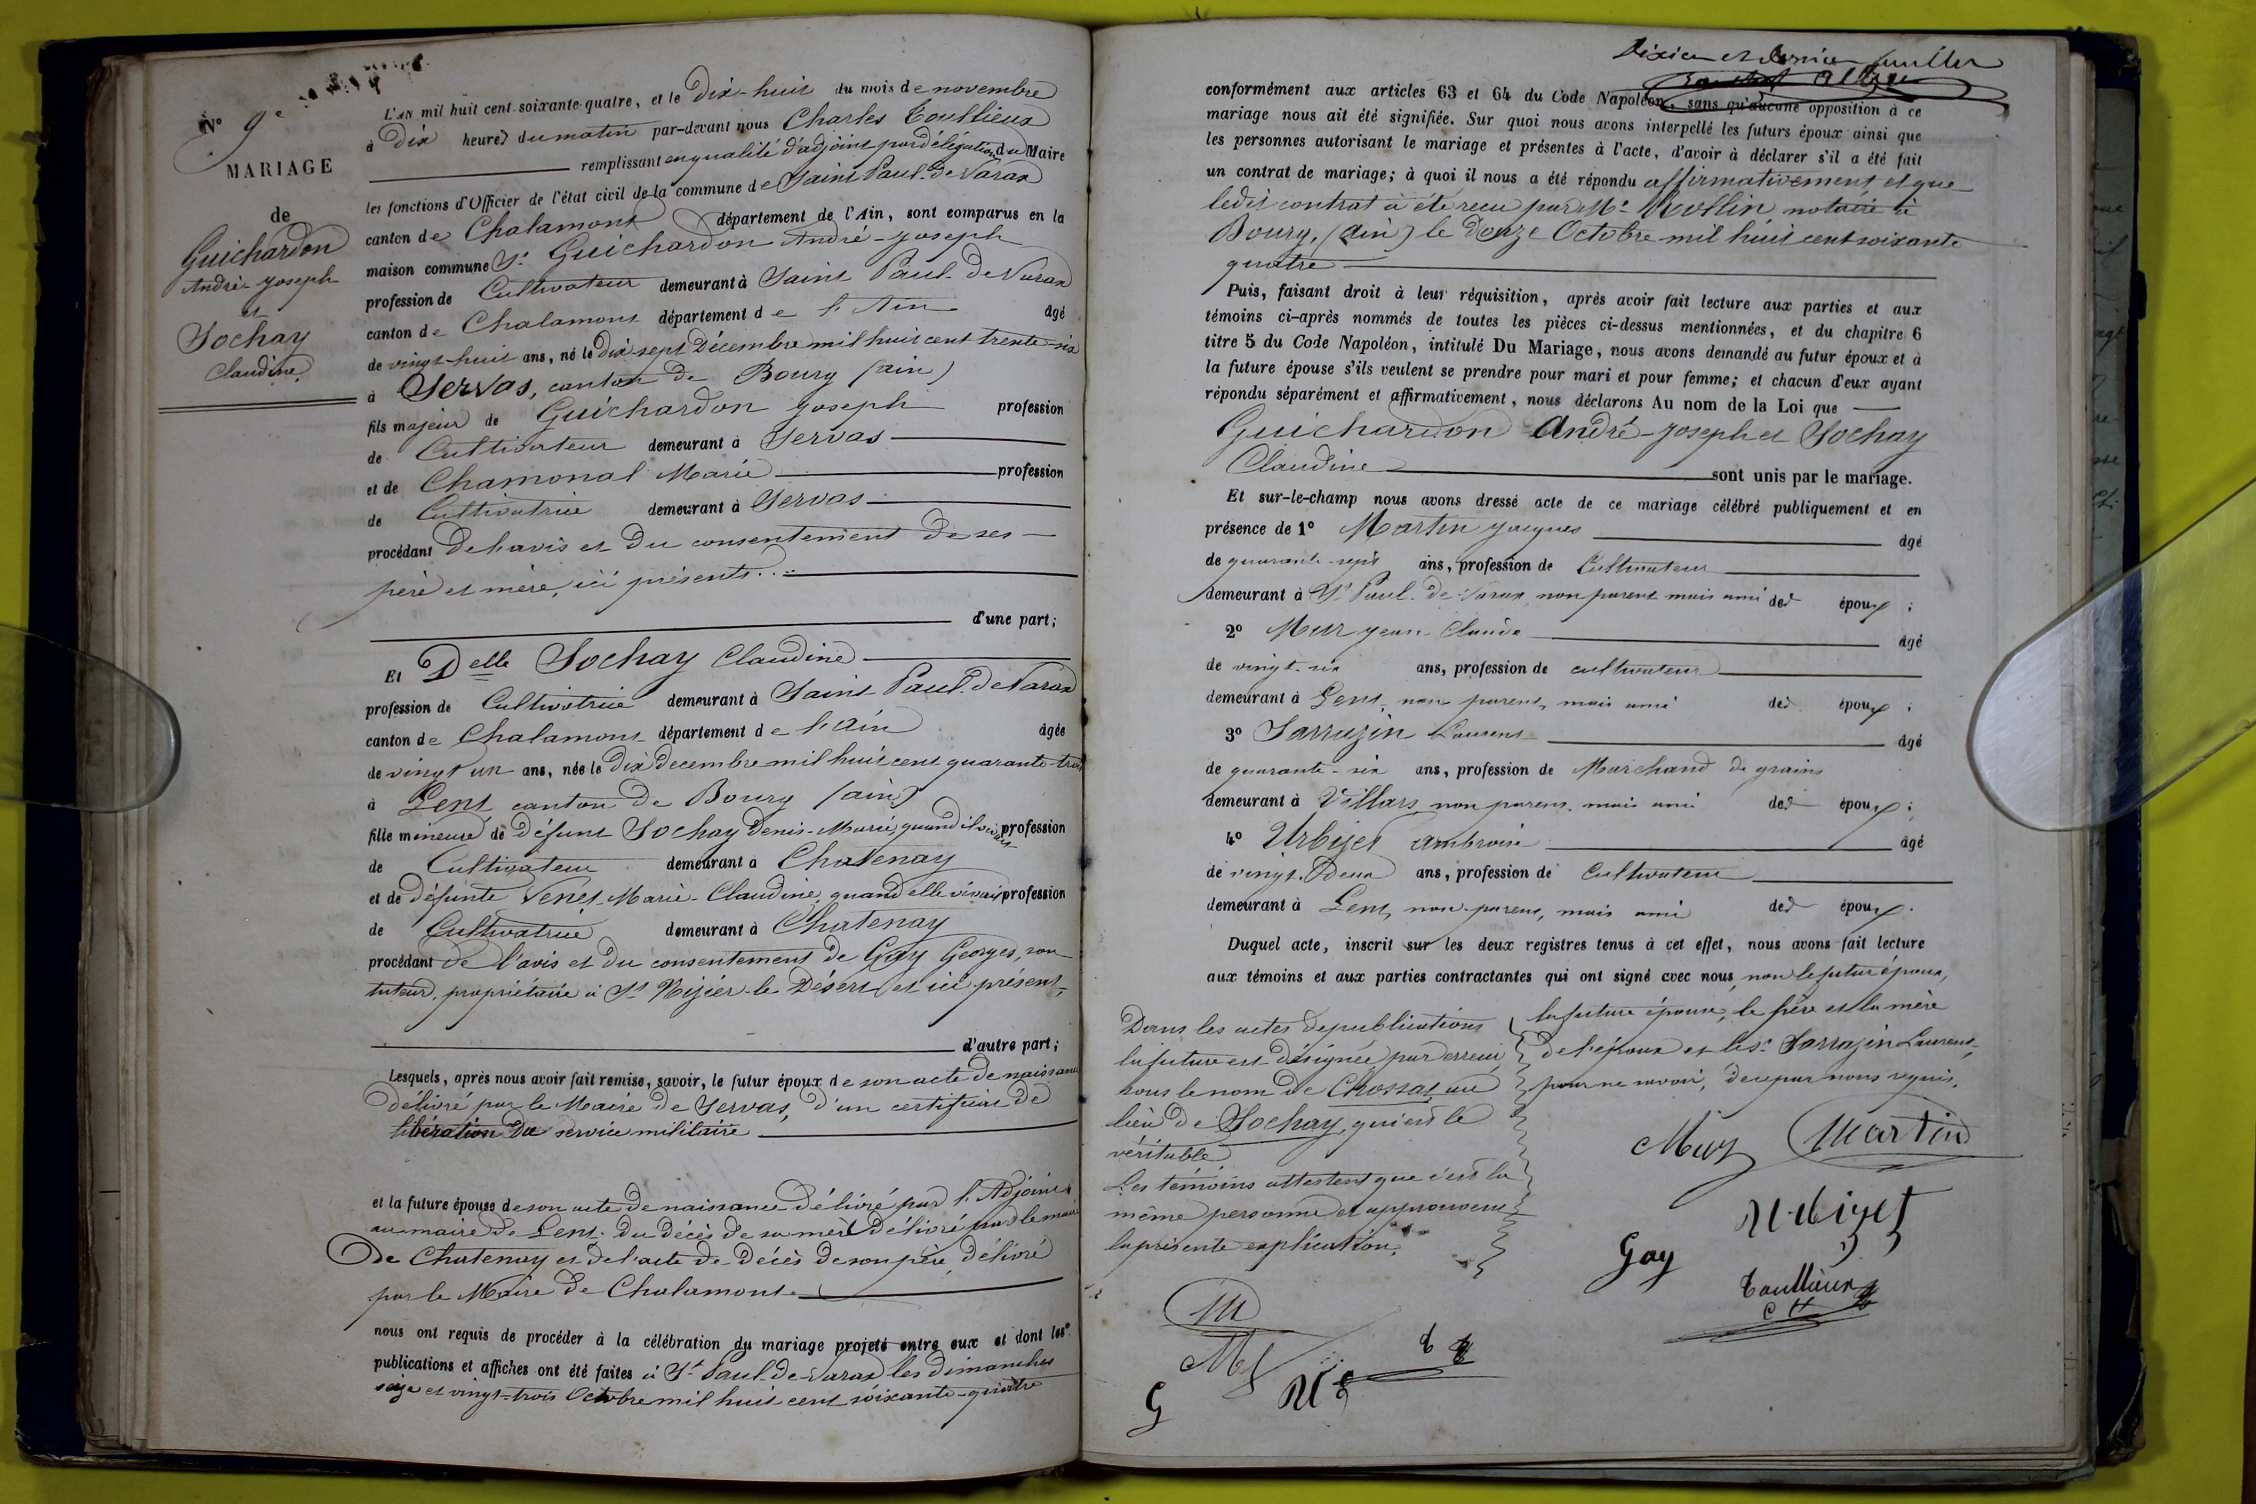 N° 9e
MARIAGE
de
Guichardon
André-Joseph
et
Sochay
Claudine.
L'AN mil huit cent soixante-quatre, et le Dix-huit du mois de novembre
à Dix heures du matin par-devant nous Charles Toullieux
remplissant en qualité d'adjoint par délégation du Maire
les fonctions d'Officier de l'état civil de la commune de Saint Paul-de Varax
canton de Chalamont département de l'Ain, sont comparus en la
maison commune Sr Guichardon André-Joseph
profession de Cultivateur demeurant à Saint Paul-de Varax
canton de Chalamont département de l'Ain âgé
de vingt-huit ans, né le Dix sept Décembre mil huit cent trente-six
à Servas, canton de Bourg (ain)
fils majeur de Guichardon Joseph profession
de Cultivateur demeurant à Servas
et de Chamonal Marie profession
de Cultivatrice demeurant à Servas
procédant De l'avis et Du consentement De ses
père et mère, ici présents..
d'une part;
Et Delle Sochay Claudine
profession de Cultivatrice demeurant à Saint Paul-de Varax
canton de Chalamont département de l'Ain âgée
de vingt un ans, née le Dix Decembre mil huit cent quarante-trois
à Lent canton de Bourg (ain)
fille mineure de défunt Sochay Denis-Marie, quand il vivait profession
de Cultivateur demeurant à Chatenay
et de défunte Venet Marie-Claudine, quand elle vivait profession
de Cultivatrice demeurant à Chatenay
procédant de l'avis et du consentement de Gay Georges, son
tuteur, propriétaire à St Nizier-le Désert et ici présent,
d'autre part;
Lesquels, après nous avoir fait remise, savoir, le futur époux de son acte de naissance
Délivré par le Maire de Servas, d'un certificat de
libération Du service militaire
et la future épouse de son acte de naissance délivré par l'Adjoint
au maire de Lent. du décès de sa mère délivré par le maire
De Chatenay et de l'acte de décès de son père, délivré
par le Maire De Chalamont.
nous ont requis de procéder à la célébration du mariage projeté entre eux et dont les
publications et affiches ont été faites à St Paul-de-Varax les dimanches
seize et vingt-trois Octobre mil huit cent soixante-quatre
Dixième et dernier feuillet
conformément aux articles 63 et 64 du Code Napoléon, sans qu'aucune opposition à ce
mariage nous ait été signifiée. Sur quoi nous avons interpellé les futurs époux ainsi que
les personnes autorisant le mariage et présentes à l'acte, d'avoir à déclarer s'il a été fait
un contrat de mariage; à quoi il nous a été répondu affirmativement et que
ledit contrat à été reçu par Me Rollin notaire à
Bourg, (ain) le douze Octobre mil huit cent soixante
quatre
Puis, faisant droit à leur réquisition, après avoir fait lecture aux parties et aux
témoins ci-après nommés de toutes les pièces ci-dessus mentionnées, et du chapitre 6
titre 5 du Code Napoléon, intitulé Du Mariage, nous avons demandé au futur époux et à
la future épouse s'ils veulent se prendre pour mari et pour femme; et chacun d'eux ayant
répondu séparément et affirmativement, nous déclarons Au nom de la Loi que
Guichardon André-Joseph et Sochay
Claudine sont unis par le mariage.
Et sur-le-champ nous avons dressé acte de ce mariage célébré publiquement et en
présence de 1° Martin Jacques âgé
de quarante-sept ans, profession de Cultivateur
demeurant à St Paul-de-Varax, non parent mais ami des époux;
2° Mur Jean-Claude âgé
de vingt-six ans, profession de cultivateur
demeurant à Lent, non parent, mais ami des époux;
3° Sarrazin Laurent âgé
de quarante-six ans, profession de Marchand de grains
demeurant à Villars, non parent, mais ami des époux;
4° Urbizet ambroise âgé
de vingt-Deux ans, profession de Cultivateur
demeurant à Lent, non-parent, mais ami des époux.
Duquel acte, inscrit sur les deux registres tenus à cet effet, nous avons fait lecture
aux témoins et aux parties contractantes qui ont signé avec nous, non le futur époux,
la future épouse, le père et la mère
de l'époux et le Sr Sarrazin Laurent,
pour ne savoir, de ce par nous requis.
Dans les actes de publications
la future est désignée par erreur
sous le nom de Chossat, au
lieu de Sochay, qui est le
véritable
Les témoins attestent que c'est la
même personne et approuvent
la présente explication.
Mur Martin
Urbizet
Gay
Toullieux
C H
M
M
T
G
U